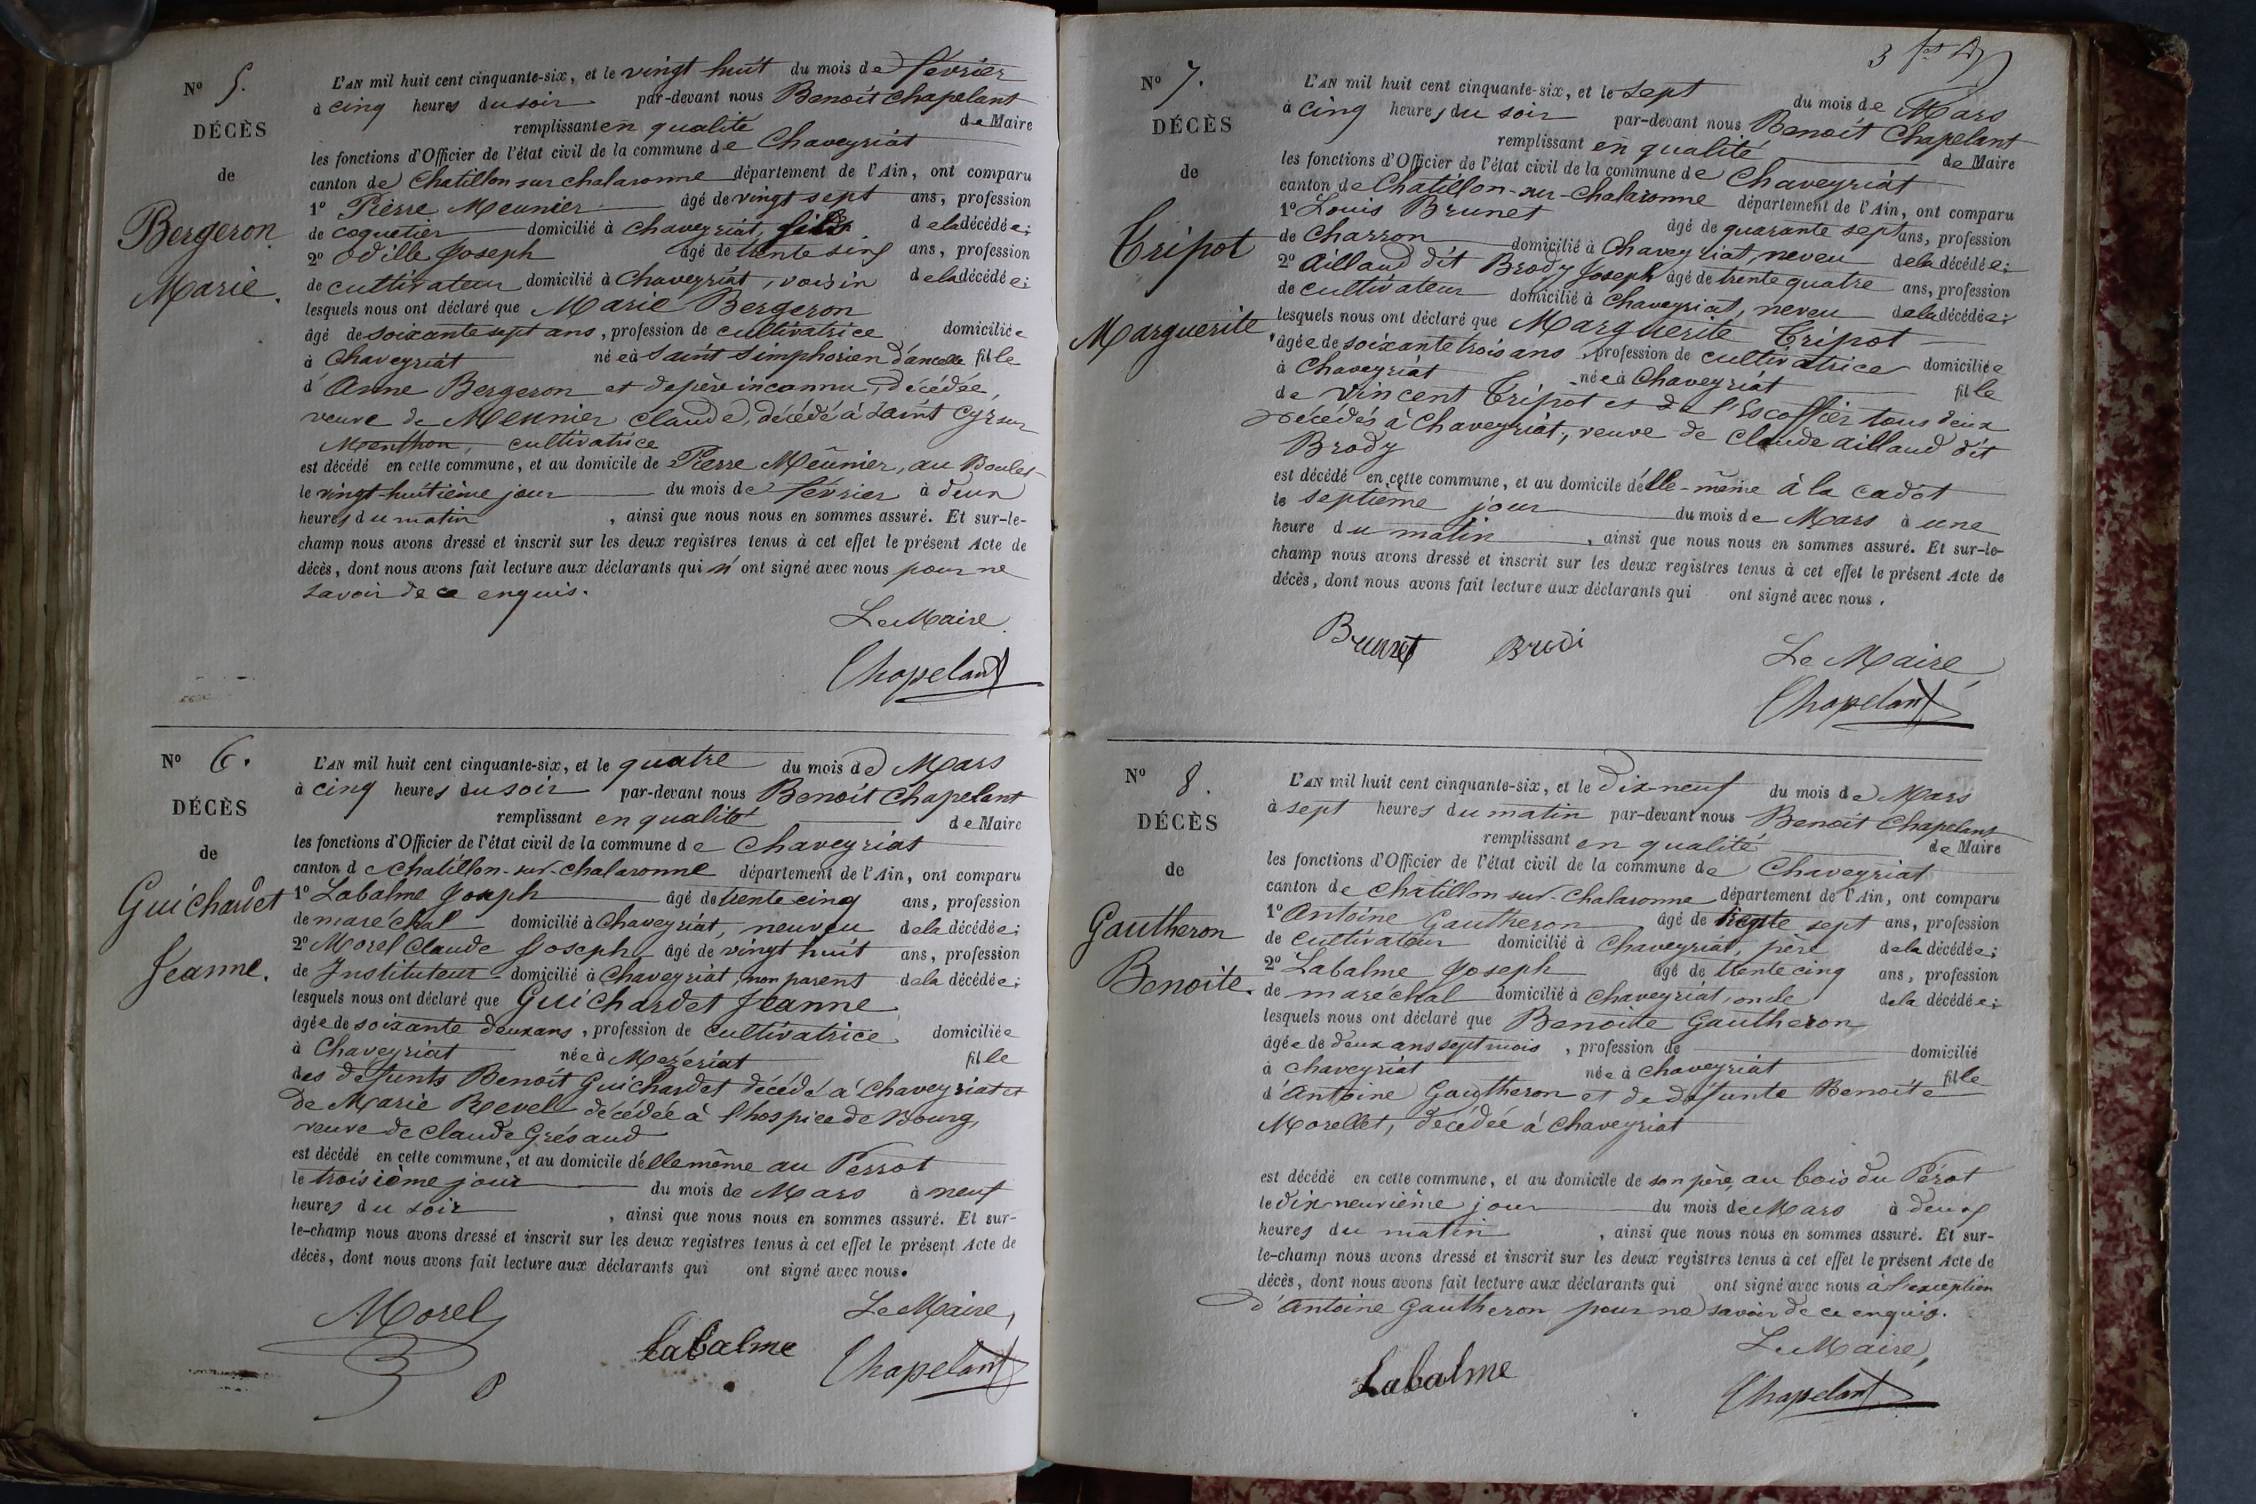 N° 5.
DÉCÈS
de
Bergeron
Marie.
L'AN mil huit cent cinquante-six, et le vingt huit du mois de février
à cinq heures du soir par-devant nous Benoît Chapelant
remplissant en qualité de Maire
les fonctions d'Officier de l'état civil de la commune de Chaveyriat
canton de Chatillon sur chalaronne département de l'Ain, ont comparu
1° Pierre Meunier âgé de vingt sept ans, profession
de coquetier domicilié à chaveyriat, fils de la décédée;
2° Odille Joseph âgé de trente sinq ans, profession
de cultivateur domicilié à Chaveyriat, voisin de la décédée;
lesquels nous ont déclaré que Marie Bergeron
âgé de soixante sept ans, profession de cultivatrice domiciliée
à Chaveyriat née à Saint Simphorien d'ancelle fille
d'Anne Bergeron et de père inconnu, décédée,
veuve de Meunier Claude, décédé à Saint Cyr sur
Menthon, cultivatrice
est décédé en cette commune, et au domicile de Pierre Meûnier, au Boulet
le vingt-huitième jour du mois de février à deux
heures du matin, ainsi que nous nous en sommes assuré. Et sur-le-
champ nous avons dressé et inscrit sur les deux registres tenus à cet effet le présent Acte de
décès, dont nous avons fait lecture aux déclarants qui n'ont signé avec nous pour ne
savoir de ce enquis.
Le Maire
Chapelant
N° 6.
DÉCÈS
de
Guichardet
Jeanne.
L'AN mil huit cent cinquante-six, et le quatre du mois de Mars
à cinq heures du soir par-devant nous Benoît Chapelant
remplissant en qualité de Maire
les fonctions d'Officier de l'état civil de la commune de Chaveyriat
canton de chatillon-sur-chalaronne département de l'Ain, ont comparu
1° Labalme Joseph âgé de trente cinq ans, profession
de maréchal domicilié à Chaveyriat, neuveu de la décédée;
2° Morel Claude Joseph âgé de vingt huit ans, profession
de Instituteur domicilié à Chaveyriat, non parent de la décédée;
lesquels nous ont déclaré que Guichardet Jeanne
âgée de soixante deux ans, profession de cultivatrice domiciliée
à Chaveyriat née à Mezériat fille
des defunts Benoît Guichardet décédé à Chaveyriat et
de Marie Revel décédée à l'hospice de Bourg,
veuve de Claude Grésaud
est décédé en cette commune, et au domicile d'elle même au Perrot
le troisième jour du mois de Mars à neuf
heures du soir, ainsi que nous nous en sommes assuré. Et sur-
le-champ nous avons dressé et inscrit sur les deux registres tenus à cet effet le présent Acte de
décès, dont nous avons fait lecture aux déclarants qui ont signé avec nous.
Le Maire,
Morel
Labalme
Chapelant
N° 7.
DÉCÈS
de
Tripot
Marguerite
L'AN mil huit cent cinquante-six, et le sept du mois de Mars
à cinq heures du soir par-devant nous Benoît Chapelant
remplissant en qualité de Maire
les fonctions d'Officier de l'état civil de la commune de Chaveyriat
canton de Chatillon-sur-Chalaronne département de l'Ain, ont comparu
1° Louis Brunet âgé de quarante sept ans, profession
de Charron domicilié à Chaveyriat, neveu de la décédée;
2° Aillaud dit Brody Joseph âgé de trente quatre ans, profession
de cultivateur domicilié à Chaveyriat, neveu de la décédée;
lesquels nous ont déclaré que Marguerite Tripot
âgée de soixante trois ans, profession de cultivatrice domiciliée
à Chaveyriat née à Chaveyriat fille
de Vincent Tripot et de l'Escoffier tous deux
décédés à Chaveyriat, veuve de Claude aillaud dit
Brody
est décédé en cette commune, et au domicile d'elle-même à la cadot
le septième jour du mois de Mars à une
heure du matin, ainsi que nous nous en sommes assuré. Et sur-le-
champ nous avons dressé et inscrit sur les deux registres tenus à cet effet le présent Acte de
décès, dont nous avons fait lecture aux déclarants qui ont signé avec nous.
Brunet Brudi
Le Maire,
Chapelant
N° 8.
DÉCÈS
de
Gautheron
Benoite.
L'AN mil huit cent cinquante-six, et le dix-neuf du mois de Mars
à sept heures du matin par-devant nous Benoît Chapelant
remplissant en qualité de Maire
les fonctions d'Officier de l'état civil de la commune de Chaveyriat
canton de chatillon-sur-Chalaronne département de l'Ain, ont comparu
1° Antoine Gautheron âgé de trente sept ans, profession
de cultivateur domicilié à Chaveyriat, père de la décédée;
2° Labalme Joseph âgé de trente cinq ans, profession
de maréchal domicilié à chaveyriat, oncle de la décédée;
lesquels nous ont déclaré que Benoite Gautheron
âgée de deux ans sept mois, profession de domicilié
à chaveyriat née à chaveyriat fille
d'Antoine Gautheron et de défunte Benoite
Morellet, décédée à Chaveyriat
est décédé en cette commune, et au domicile de son père, au bois du Pérot
le dix-neuvième jour du mois de Mars à deux
heures du matin, ainsi que nous nous en sommes assuré. Et sur-
le-champ nous avons dressé et inscrit sur les deux registres tenus à cet effet le présent Acte de
décès, dont nous avons fait lecture aux déclarants qui ont signé avec nous à l'exception
d'Antoine Gautheron pour ne savoir de ce enquis.
Le Maire,
Labalme
Chapelant